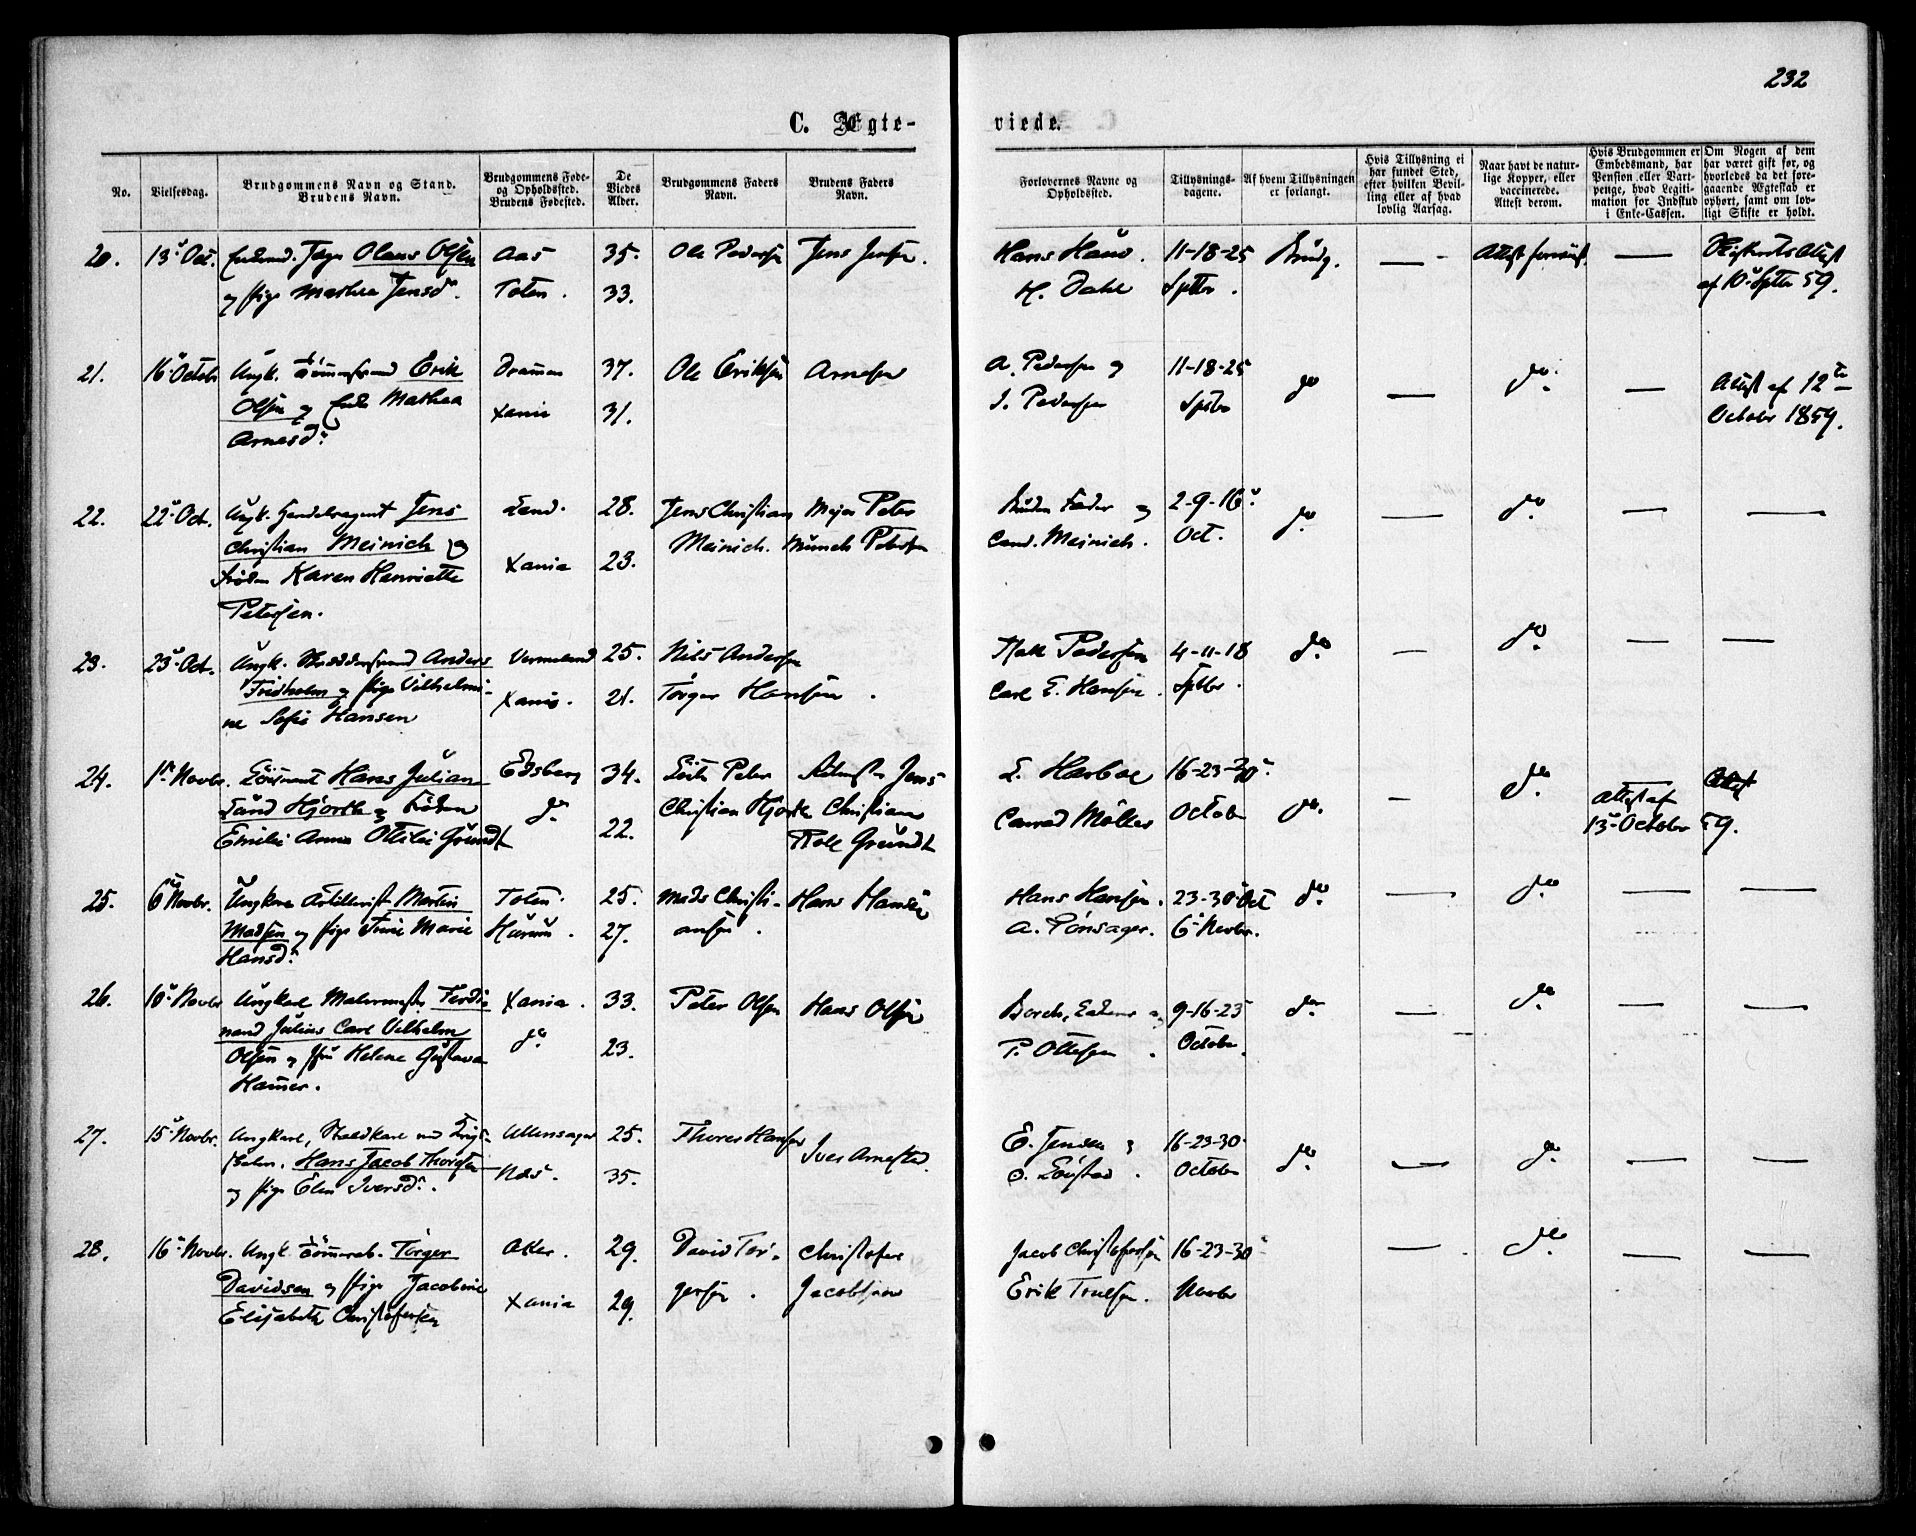 232
C. Ægte-
viede.
No.
Vielsesdag.
Brudgommens Navn og Stand.
Brudens Navn.
Brudgommens Føde-
og Opholdssted.
Brudens Fødested.
De
Viedes
Alder.
Brudgommens Faders
Navn.
Brudens Faders
Navn.
Forlovernes Navne og
Opholdssted.
Tillysnings-
dagene.
Af hvem Tillysningen
er forlangt.
Hvis Tillysning ei
har fundet Sted,
efter hvilken Bevil-
ling eller af hvad
lovlig Aarsag.
Naar havt de natur-
lige Kopper, eller
vaccinerede.
Attest derom.
Hvis Brudgommen er
Embedsmand, har
Pension eller Vart-
penge, hvad Legiti-
mation for Indskud
i Enke-Cassen.
Om Nogen af dem
har været gift før, og
hvorledes da det fore-
gaaende Ægteskab er
ophørt, samt om lov-
ligt Skifte er holdt.
20. 13 Oct. Olaus Olsen Aas 35. Ole Pedersen Jens Jensen. Hans 11-18-25
og Pige Mathea Jensd. Toten. 33. H. Dahl Septbr. af 10 Septbr 59.
21. 16 Octob Ungk. Erik Drammen 37. Ole Eriksen Arnesen A. Pedersen og 11-18-25 do do Attest af 12te
Olsen og Enke Mathea Xania 31. J. Pedersen Septbr October 1859.
Arnesd.
22. 22 Oct. Ungk. Handelsagent Jens Land. 28. Jens Christian Major Peter Brudens Fader og 2-9-16 do do
Christian Meinich og Xania 23. Meinich. Munch Petersen Cand. Meinich. Oct.
Frøken Karen Henriette
Petersen.
23. 23 Oct. Ungk. Anders Vermeland 25. Nils Andersen Pedersen 4-11-18 do do
Fridholm og Pige Vilhelmi- Xania. 21. Torger Hansen. Carl E. Hansen. Septbr.
ne Sofie Hansen
24. 1 Novbr. Hans Julian Edsberg 34. Peter Jens L. Harboe 16-23-30 do
Lund Hjorth og Frøken do 22. Christian Hjorth Christian Conrad Møller October do Attest af
Emilie Anna Ottilie Grundt Grundt 13 October 59.
25. 6 Novbr. Ungkarl Artillerist Martin Toten. 25. Mads Christi- Hans Hansen Hans Hansen. 23-30 Oct do do
Madsen og Pige Marie Hurum. 27. ansen. A. Tønsager. 6 Novbr.
Hansd.
26. 10 Novbr Ungkarl Malermester Ferdi- Xania. 33. Peter Olsen Hans Olsen 9-16-23 do do
nand Julius Carl Vilhelm do 23. P. Ottesen. October.
Olsen og Helene Gustava
Hamer.
27. 15 Novbr. Ungkarl, Staldkarl Ullensager 25. Thores Hansen Iver Arnested. E. Jensen 16-23-30 do do
Hans Jacob Thoresen Næs. 35. October
og Pige Elen Iversd.
28. 16 Novbr. Ungk. Tømmerarb. Torger Aker. 29. David Tor- Christofer Jacob Christofersen 16-23-30 do
Davidsen og Pige Jacobine Xania 29. gersen. Jacobsen Erik Truelsen. Novbr
Elisabeth Christofersen